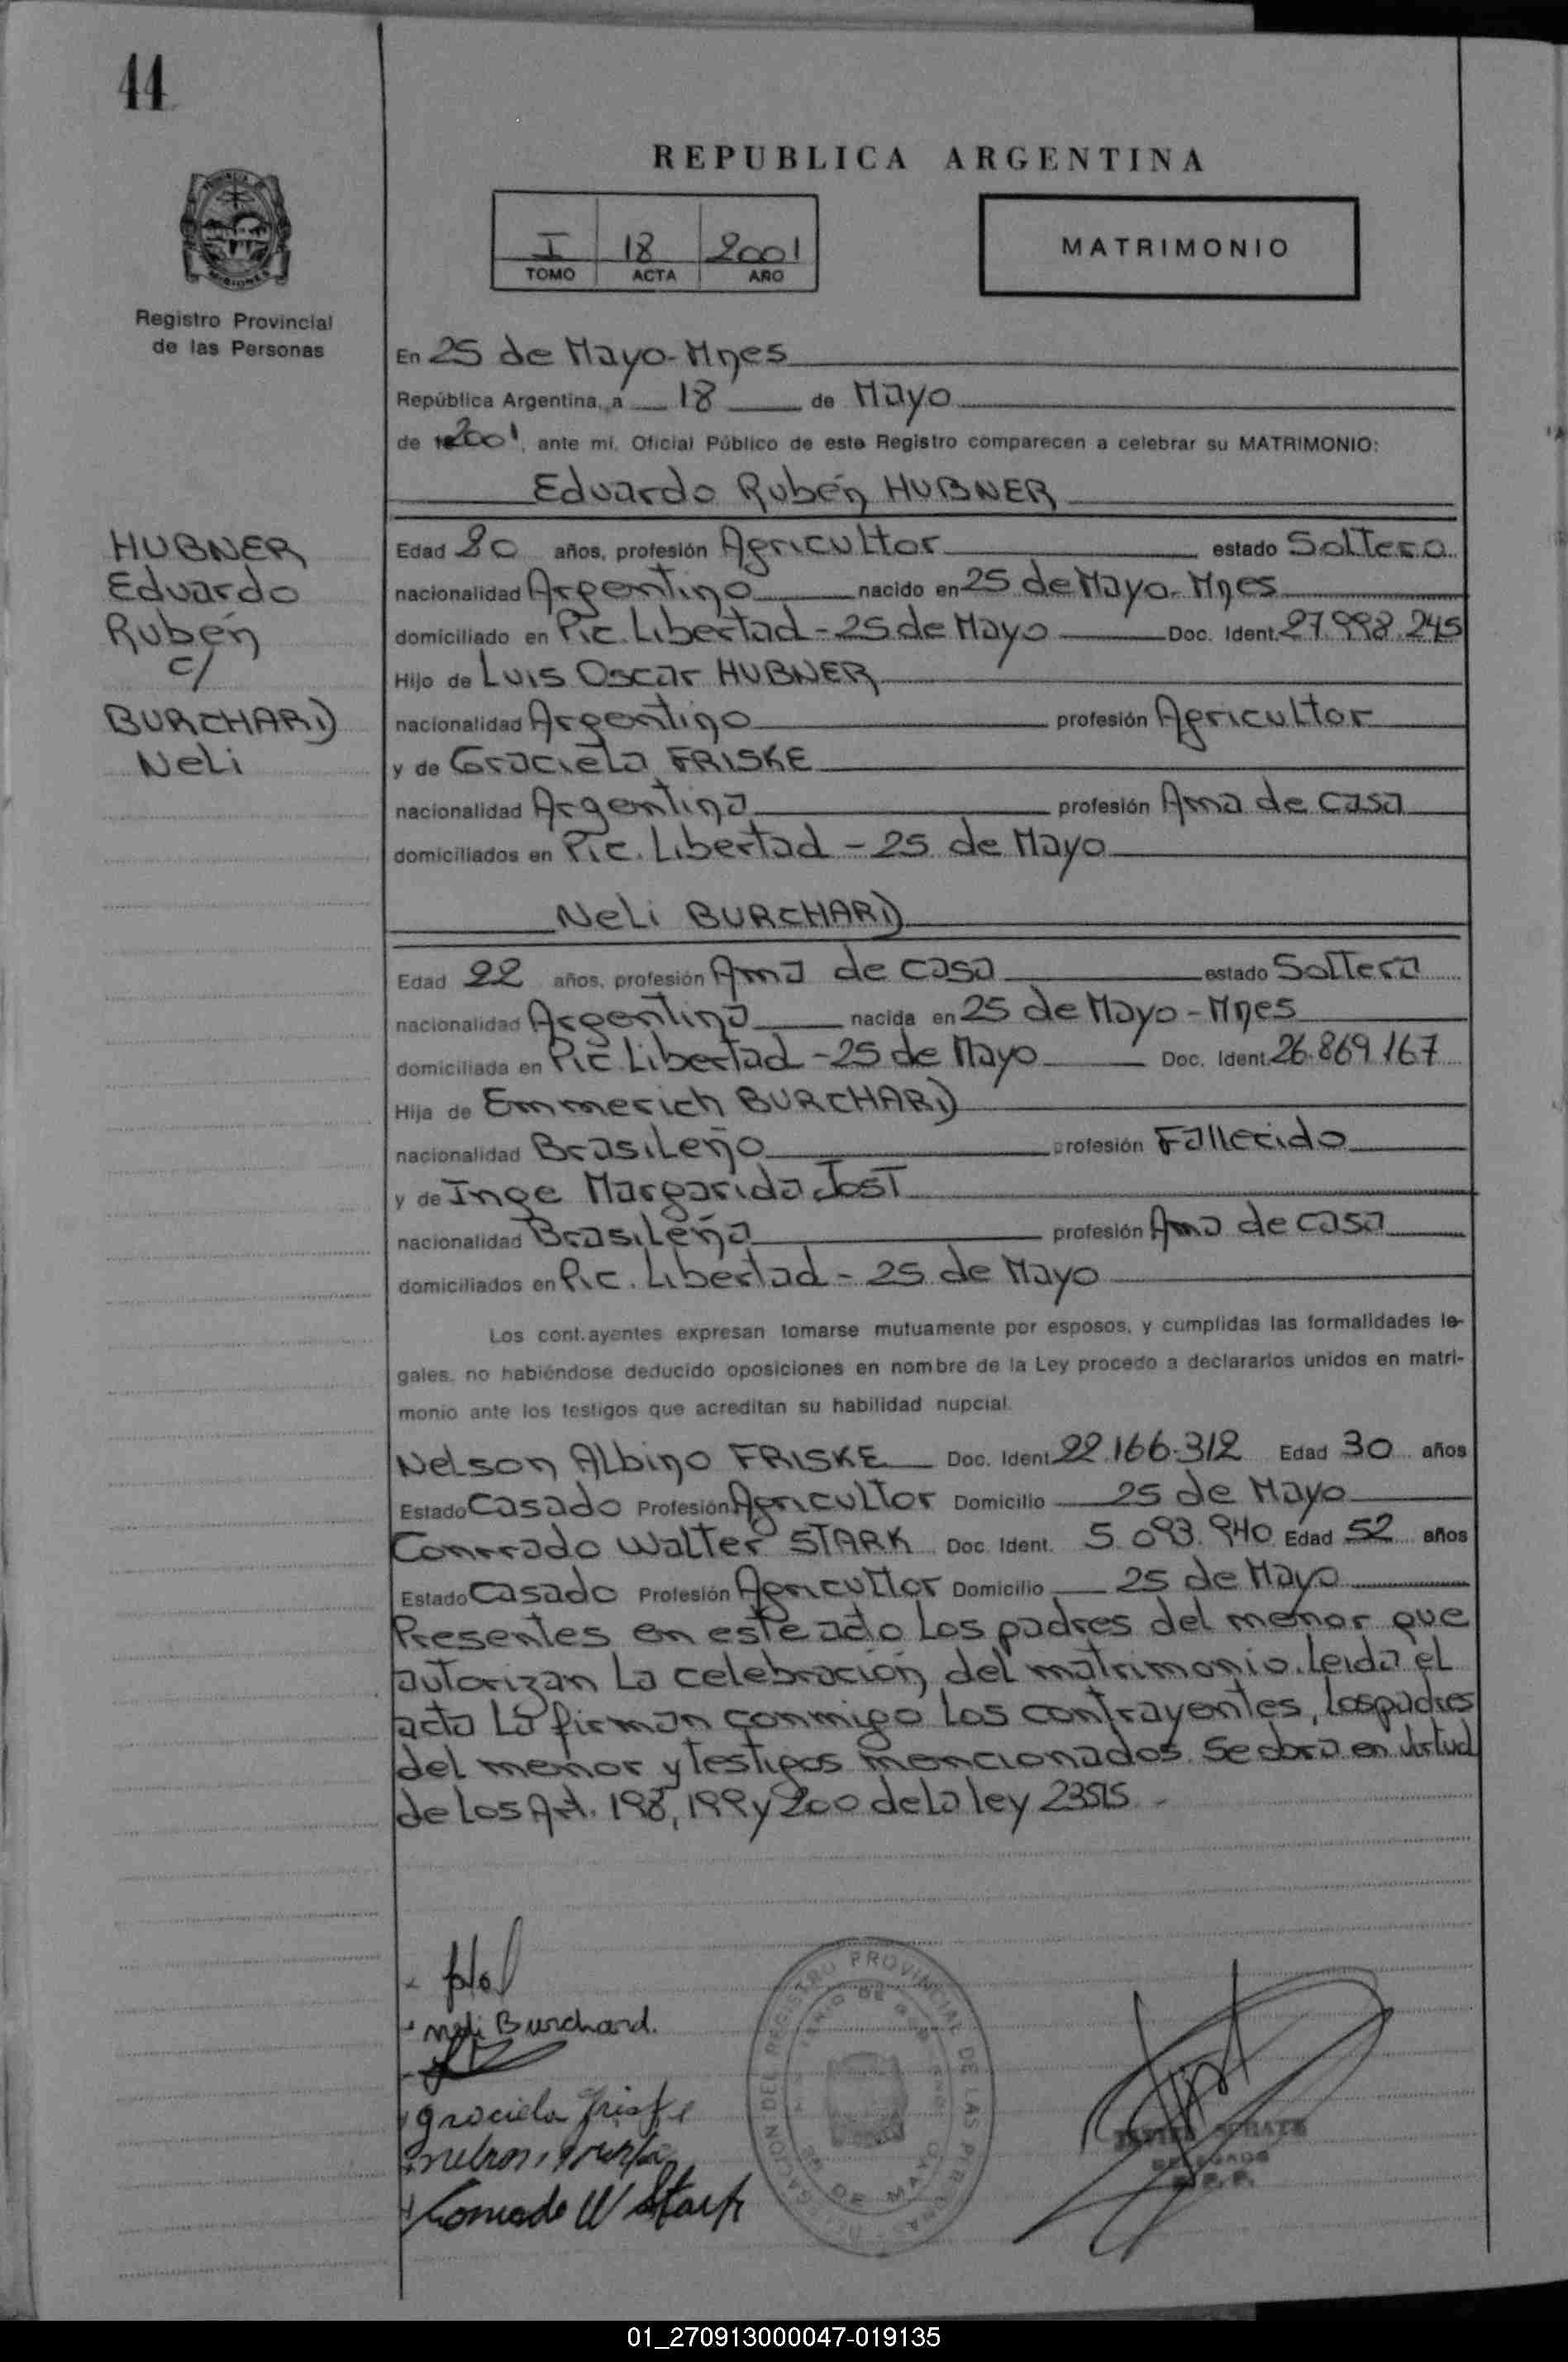 44
REPUBLICA ARGENTINA
I 18 2001
TOMO ACTA AÑO
MATRIMONIO
Registro Provincial
de las Personas
En 25 de Mayo-Mnes
República Argentina, a 18 de Mayo
de 2001, ante mi, Oficial Público de este Registro comparecen a celebrar su MATRIMONIO:
Eduardo Rubén HUBNER
HUBNER
Eduardo
Rubén
c/
BURCHARD
Neli
Edad 20 años, profesión Agricultor estado Soltero
nacionalidad Argentino nacido en 25 de Mayo-Mnes
domiciliado en Pic. Libertad - 25 de Mayo Doc. Ident. 27.998.245
Hijo de Luis Oscar HUBNER
nacionalidad Argentino profesión Agricultor
y de Graciela FRISKE
nacionalidad Argentina profesión Ama de casa
domiciliados en Pic. Libertad - 25 de Mayo
Neli BURCHARD
Edad 22 años, profesión Ama de casa estado Soltera
nacionalidad Argentina nacida en 25 de Mayo - Mnes
domiciliada en Pic. Libertad - 25 de Mayo Doc. Ident. 26.869.167
Hija de Emmerich BURCHARD
nacionalidad Brasileño profesión Fallecido
y de Inge Margarida JOST
nacionalidad Brasileña profesión Ama de casa
domiciliados en Pic. Libertad - 25 de Mayo
Los cont.ayentes expresan tomarse mutuamente por esposos, y cumplidas las formalidades le-
gales, no habiéndose deducido oposiciones en nombre de la Ley procedo a declararlos unidos en matri-
monio ante los testigos que acreditan su habilidad nupcial.
Nelson Albino FRISKE Doc. Ident. 22.166.312 Edad 30 años
Estado Casado Profesión Agricultor Domicilio 25 de Mayo
Conrrado Walter STARK Doc. Ident. 5.093.940 Edad 52 años
Estado Casado Profesión Agricultor Domicilio 25 de Mayo
Presentes en este acto los padres del menor que
autorizan la celebración del matrimonio. Leida el
acta la firman conmigo los contrayentes, los padres
del menor y testigos mencionados. Se obra en virtud
de los Art. 198, 199 y 200 de la ley 23515.-
Neli Burchard.
Graciela Friske
Conrado W Stark
REGISTRO PROVINCIAL DE LAS PERSONAS
25 DE MAYO
DELEGADO
R.P.P.
01_270913000047-019135